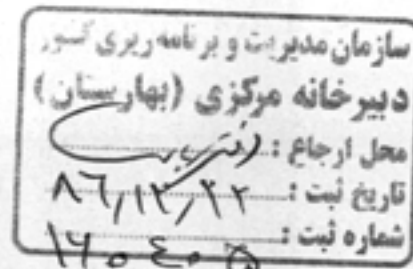 سازمان مدیریت و برنامه ریزی کشور
دبیرخانه مرکزی (بهارستان)
محل ارجاع :
تاریخ ثبت : ۸۶/۱۲/۲۲
شماره ثبت :